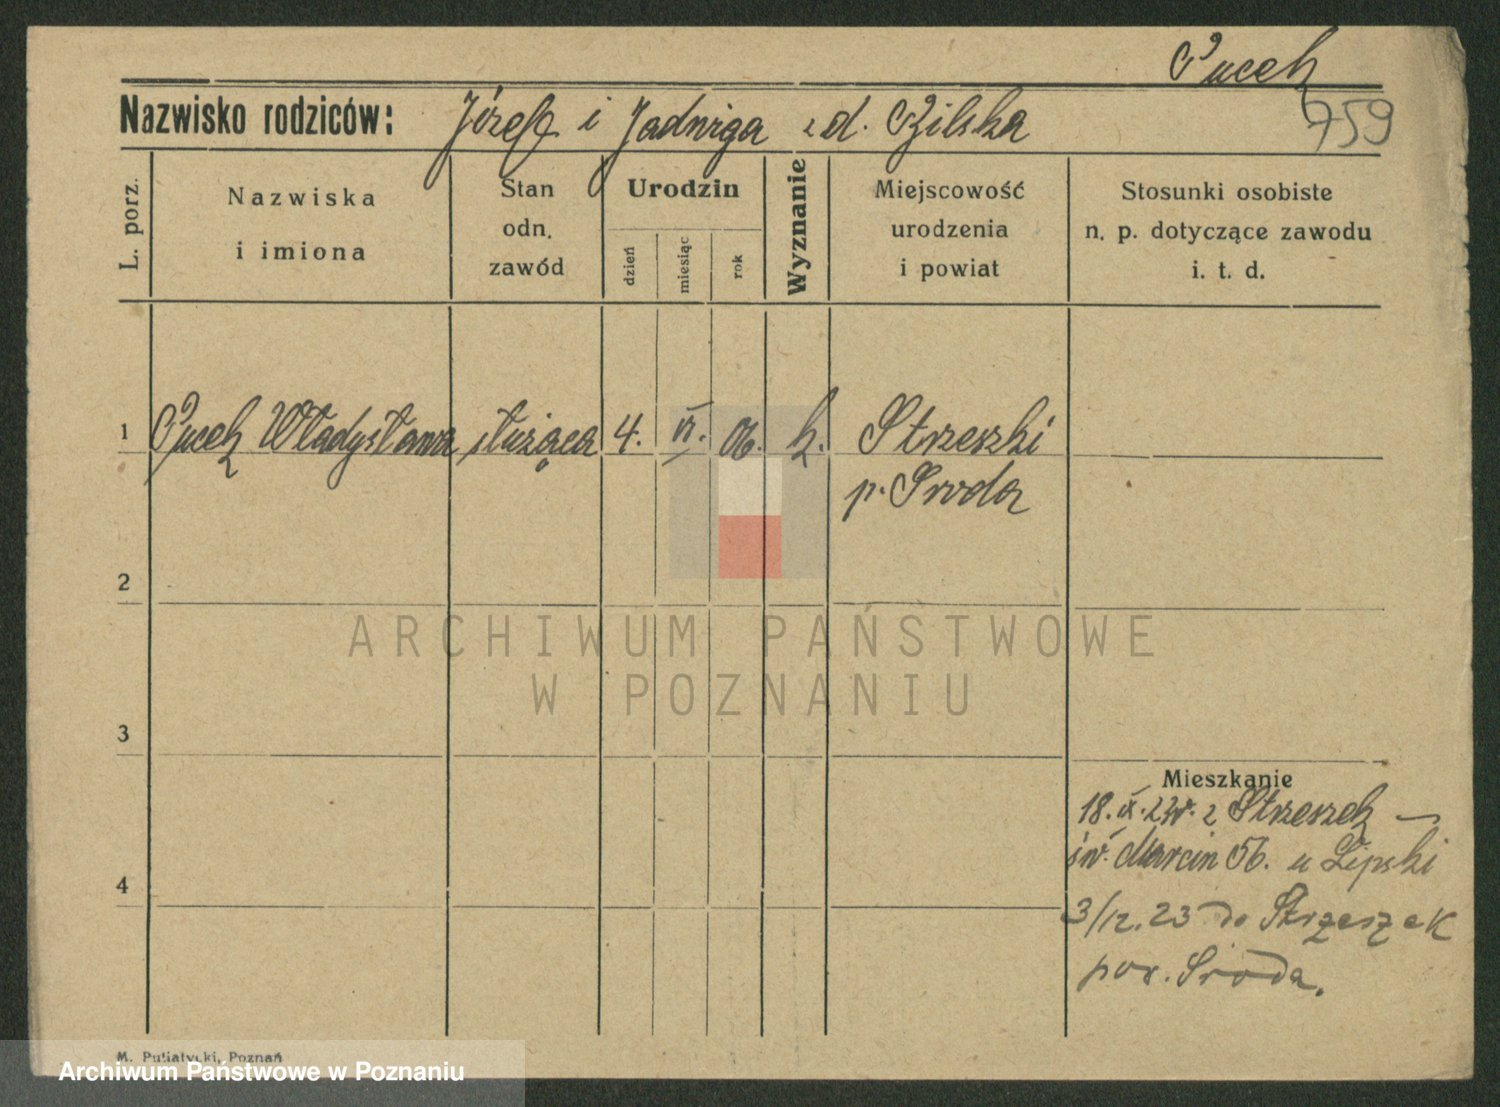 Pucek
759
Nazwisko rodziców: Józef i Jadwiga z d. Czilska
L. porz.
Nazwiska i imiona
Stan odn. zawód
Urodzin
dzień
miesiąc
rok
Wyznanie
Miejscowość urodzenia i powiat
Stosunki osobiste n. p. dotyczące zawodu i. t. d.
1 Pucek Władysława służąca 4. VI. 06. k. Strzeszki
p. Sroda
2
3
4
Mieszkanie
18. IX. 22 r. z Strzeszek –
św. Marcin 56. u Lipski
3/12. 23 do Strzeszek
pow. Sroda.
M. Putiatycki, Poznań
ARCHIWUM PAŃSTWOWE
W POZNANIU
Archiwum Państwowe w Poznaniu